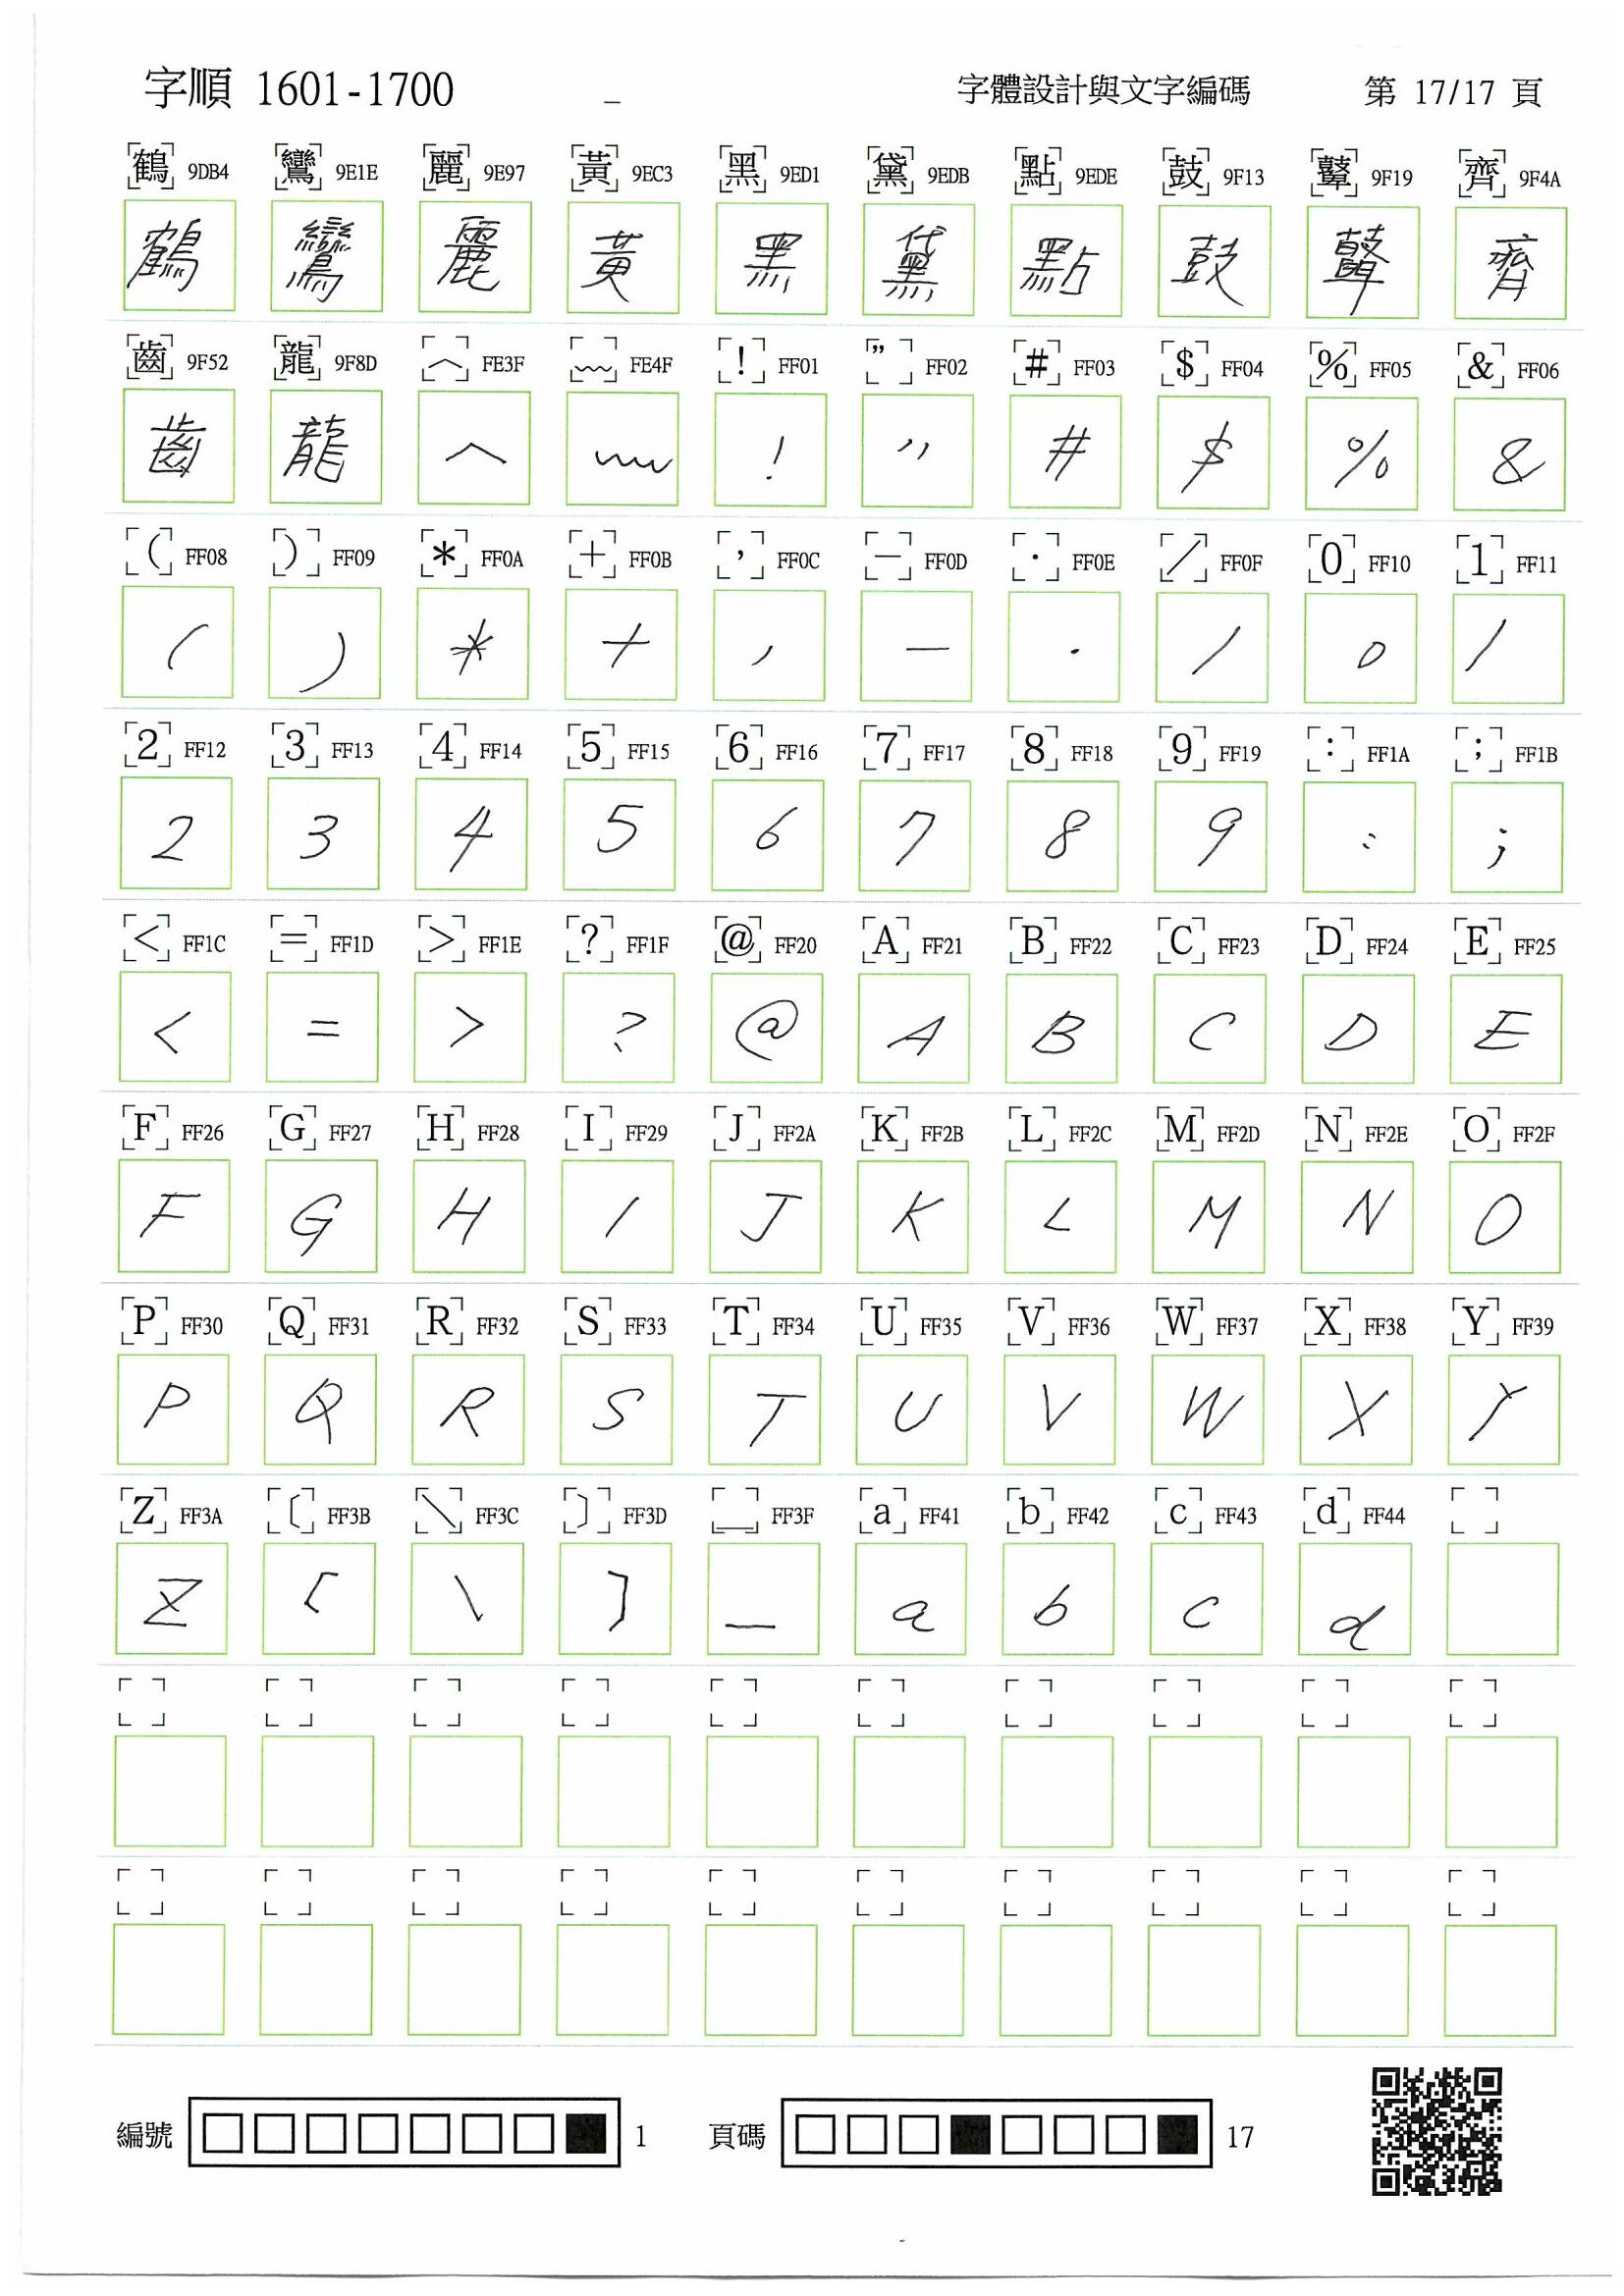 字順 1601-1700 字體設計與文字編碼 第 17/17 頁
鶴 9DB4 鸞 9E1E 麗 9E97 黃 9EC3 黑 9ED1 黛 9EDB 點 9EDE 鼓 9F13 鼙 9F19 齊 9F4A
鶴 鸞 麗 黃 黑 黛 點 鼓 鼙 齊
齒 9F52 龍 9F8D ︿ FE3F ﹏ FE4F ! FF01 ” FF02 # FF03 $ FF04 % FF05 & FF06
齒 龍 ︿ ﹏ ! ” # $ % &
( FF08 ) FF09 * FF0A + FF0B , FF0C － FF0D . FF0E / FF0F 0 FF10 1 FF11
( ) * + , － . / 0 1
2 FF12 3 FF13 4 FF14 5 FF15 6 FF16 7 FF17 8 FF18 9 FF19 : FF1A ; FF1B
2 3 4 5 6 7 8 9 : ;
< FF1C = FF1D > FF1E ? FF1F @ FF20 A FF21 B FF22 C FF23 D FF24 E FF25
< = > ? @ A B C D E
F FF26 G FF27 H FF28 I FF29 J FF2A K FF2B L FF2C M FF2D N FF2E O FF2F
F G H I J K L M N O
P FF30 Q FF31 R FF32 S FF33 T FF34 U FF35 V FF36 W FF37 X FF38 Y FF39
P Q R S T U V W X Y
Z FF3A 〔 FF3B \ FF3C 〕 FF3D _ FF3F a FF41 b FF42 c FF43 d FF44
Z [ \ ] _ a b c d
編號 1 頁碼 17